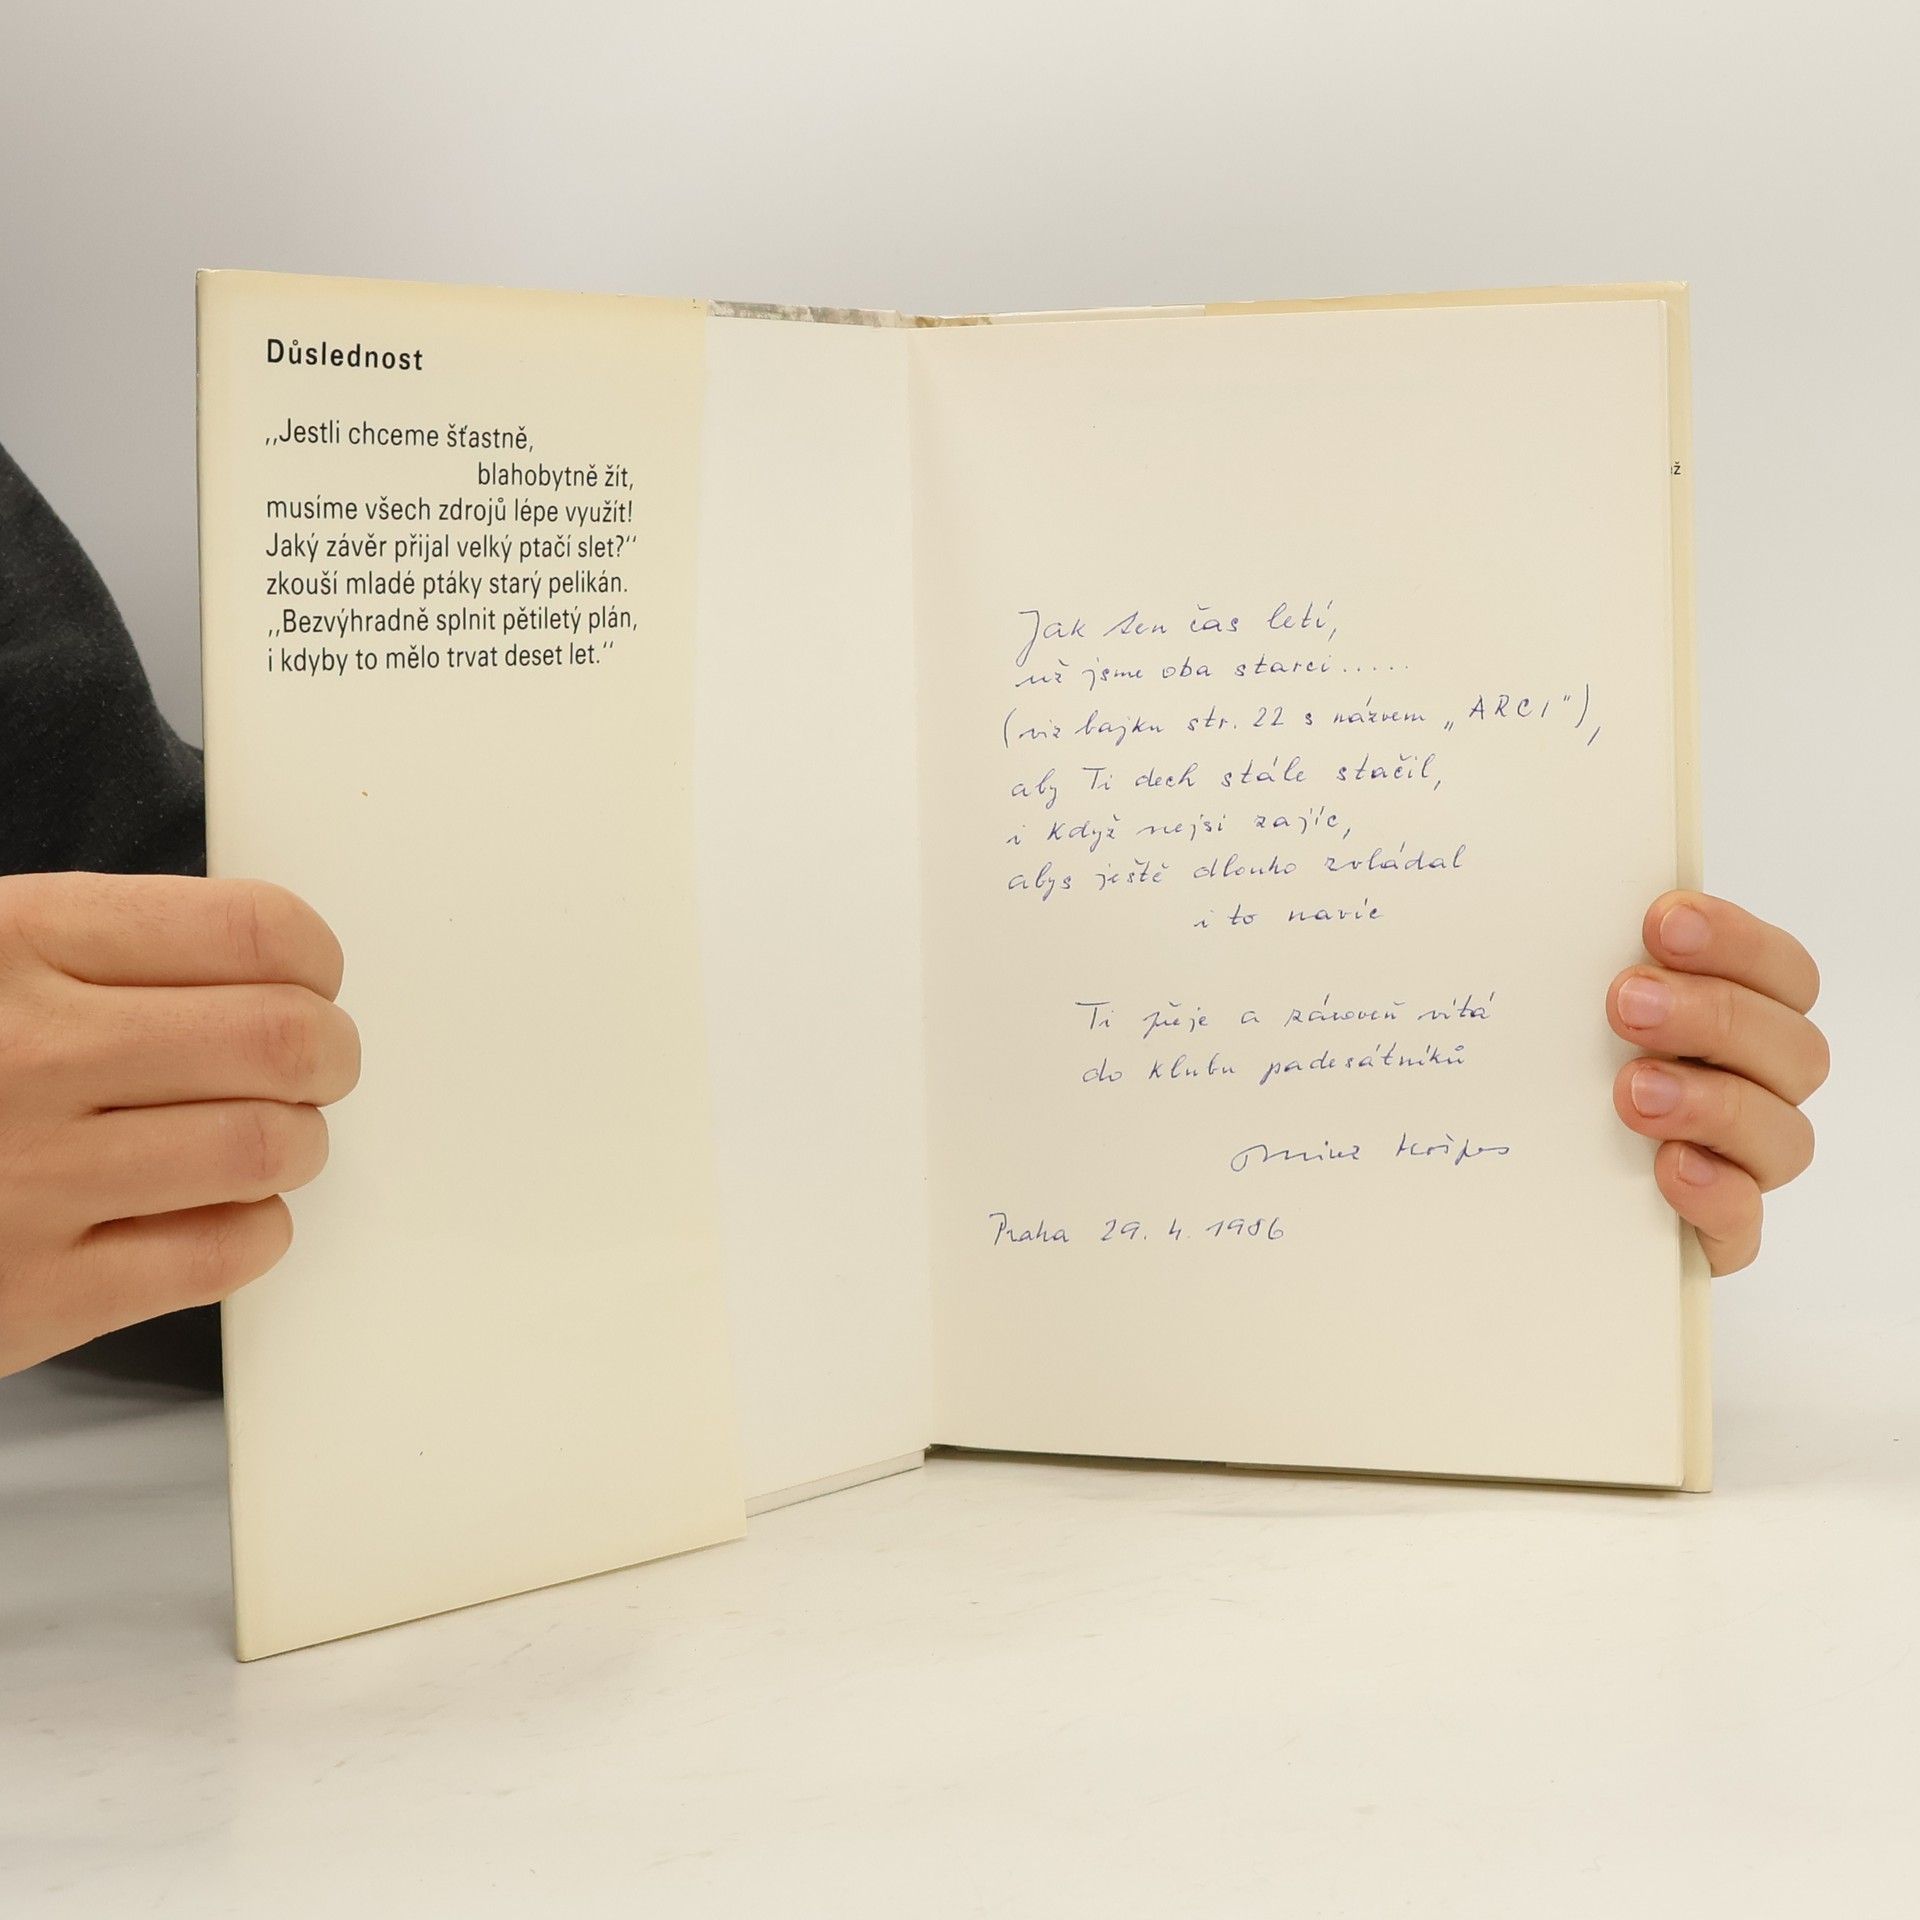 Důslednost
,,Jestli chceme šťastně,
blahobytně žít,
musíme všech zdrojů lépe využít!
Jaký závěr přijal velký ptačí slet?“
zkouší mladé ptáky starý pelikán.
,,Bezvýhradně splnit pětiletý plán,
i kdyby to mělo trvat deset let.“
ž
Jak ten čas letí,
už jsme oba starci.....
(viz bajku str. 22 s názvem „ARCI"),
aby Ti dech stále stačil,
i když nejsi zajíc,
abys ještě dlouho zvládal
i to navíc
Ti přeje a zároveň vítá
do klubu padesátníků
Praha 29. 4. 1986